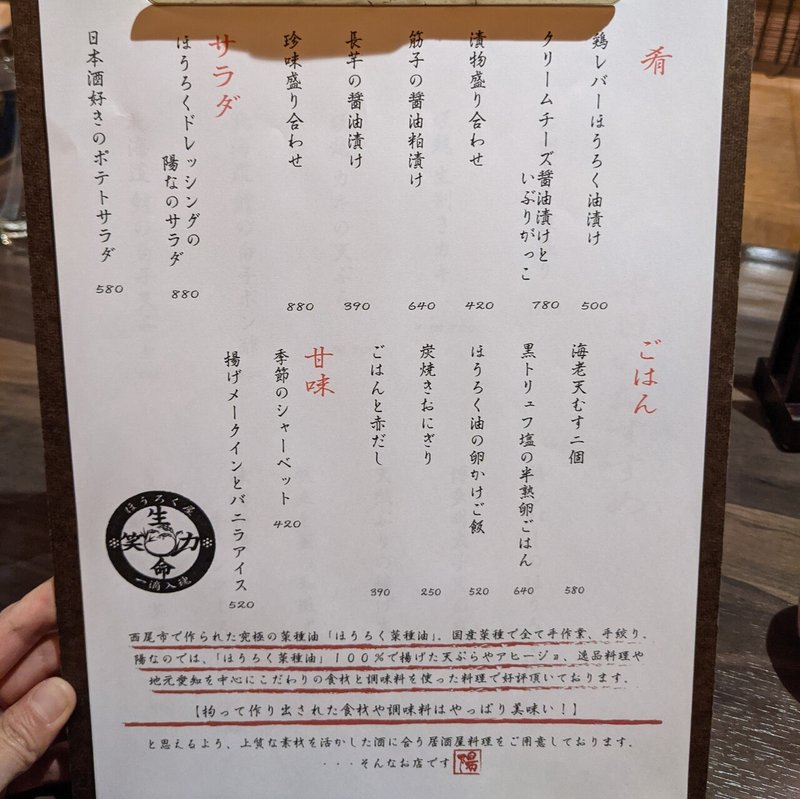 肴
鶏レバーほうろく油漬け
500
クリームチーズ醤油漬けと
いぶりがっこ
780
漬物盛り合わせ
420
筋子の醤油粕漬け
640
長芋の醤油漬け
390
珍味盛り合わせ
880
サラダ
ほうろくドレッシングの
陽なのサラダ
880
日本酒好きのポテトサラダ
580
ごはん
海老天むす二個
580
黒トリュフ塩の半熟卵ごはん
640
ほうろく油の卵かけご飯
520
炭焼きおにぎり
250
ごはんと赤だし
390
甘味
季節のシャーベット
420
揚げメークインとバニラアイス
520
ほうろく屋
生
笑 力
命
一滴入魂
西尾市で作られた究極の菜種油「ほうろく菜種油」。国産菜種で全て手作業、手絞り。
陽なのでは、「ほうろく菜種油」１００％で揚げた天ぷらやアヒージョ、逸品料理や
地元愛知を中心にこだわりの食材と調味料を使った料理で好評頂いております。
【拘って作り出された食材や調味料はやっぱり美味い！】
と思えるよう、上質な素材を活かした酒に合う居酒屋料理をご用意しております。
・・・そんなお店です 陽